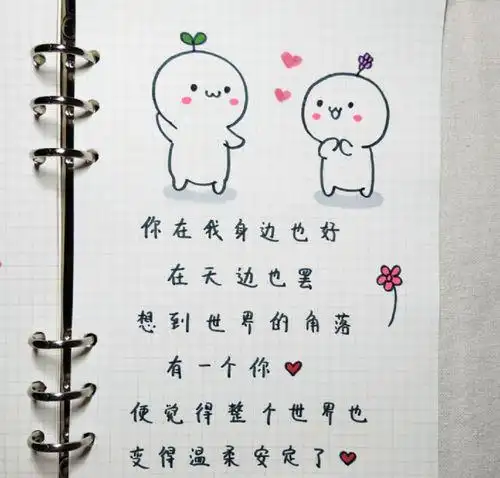 你在我身边也好
在天边也罢
想到世界的角落
有一个你
便觉得整个世界也
变得温柔安定了